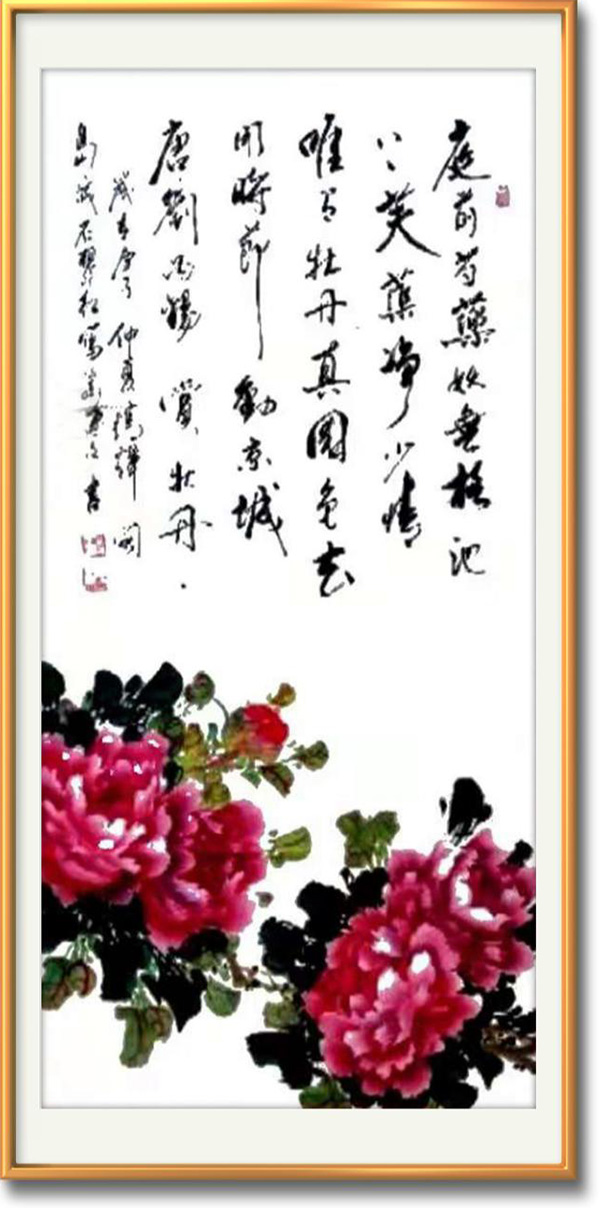 庭前芍藥妖無格池
上芙蕖净少情
唯有牡丹真國色花
開時節動京城
唐劉禹錫賞牡丹
歲在庚子仲夏
島城石